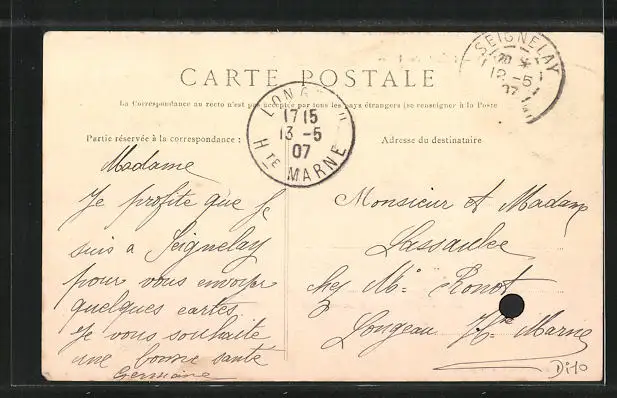 SEIGNELAY
20 *
12 -5
07
CARTE POSTALE
La Correspondance au recto n'est pas acceptée par tous les pays étrangers (se renseigner à la Poste
LONG
17 15
13 -5
07
Hte MARNE
Partie réservée à la correspondance :
Adresse du destinataire
Madame
Je profite que je
suis a Seignelay
pour vous envoyer
quelques cartes
Je vous souhaite
une bonne santé
Germaine
Monsieur et Madame
Lassaulce
chez Mr Ronot
Longeau Hte Marne
Di10